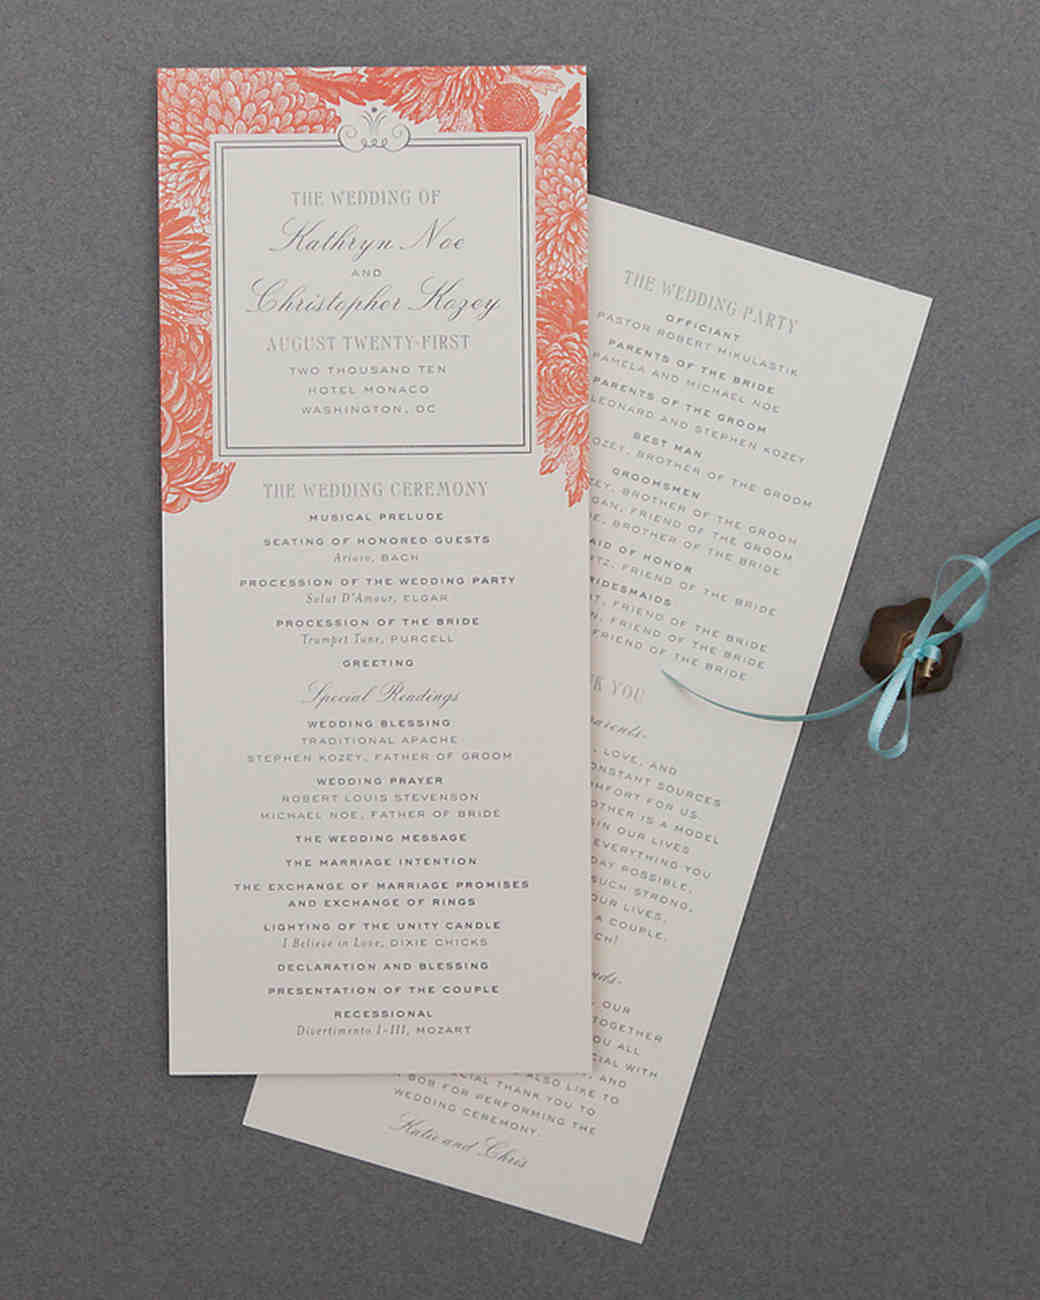 THE WEDDING OF
Kathryn Noe
AND
Christopher Kozey
AUGUST TWENTY-FIRST
TWO THOUSAND TEN
HOTEL MONACO
WASHINGTON, DC
THE WEDDING CEREMONY
MUSICAL PRELUDE
SEATING OF HONORED GUESTS
Arioso, BACH
PROCESSION OF THE WEDDING PARTY
Salut D'Amour, ELGAR
PROCESSION OF THE BRIDE
Trumpet Tune, PURCELL
GREETING
Special Readings
WEDDING BLESSING
TRADITIONAL APACHE
STEPHEN KOZEY, FATHER OF GROOM
WEDDING PRAYER
ROBERT LOUIS STEVENSON
MICHAEL NOE, FATHER OF BRIDE
THE WEDDING MESSAGE
THE MARRIAGE INTENTION
THE EXCHANGE OF MARRIAGE PROMISES
AND EXCHANGE OF RINGS
LIGHTING OF THE UNITY CANDLE
I Believe in Love, DIXIE CHICKS
DECLARATION AND BLESSING
PRESENTATION OF THE COUPLE
RECESSIONAL
Divertimento I-III, MOZART
THE WEDDING PARTY
OFFICIANT
PASTOR ROBERT MIKULASTIK
PARENTS OF THE BRIDE
PAMELA AND MICHAEL NOE
PARENTS OF THE GROOM
LEONARD AND STEPHEN KOZEY
BEST MAN
KOZEY, BROTHER OF THE GROOM
GROOMSMEN
BROTHER OF THE GROOM
FRIEND OF THE GROOM
BROTHER OF THE BRIDE
OF HONOR
FRIEND OF THE BRIDE
BRIDESMAIDS
FRIEND OF THE BRIDE
FRIEND OF THE BRIDE
FRIEND OF THE BRIDE
YOU
LOVE, AND
CONSTANT SOURCES
FOR US.
IS A MODEL
IN OUR LIVES
EVERYTHING YOU
DAY POSSIBLE,
SUCH STRONG,
OUR LIVES.
A COUPLE.
OUR
TOGETHER
YOU ALL
WITH
AND
ALSO LIKE TO
THANK YOU TO
BOB FOR PERFORMING THE
WEDDING CEREMONY.
Katie and Chris